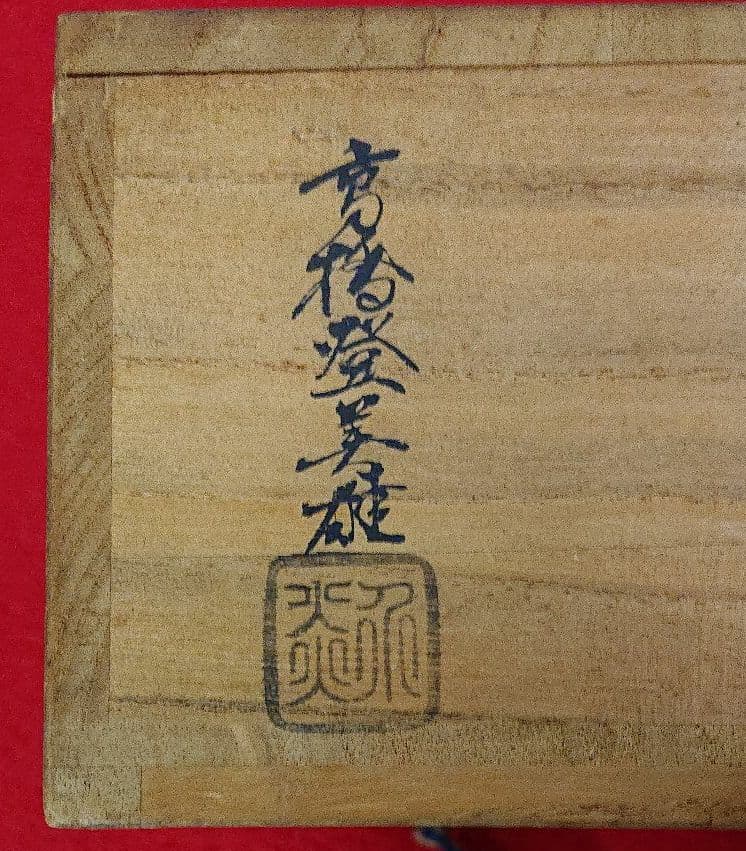 高橋登美雄